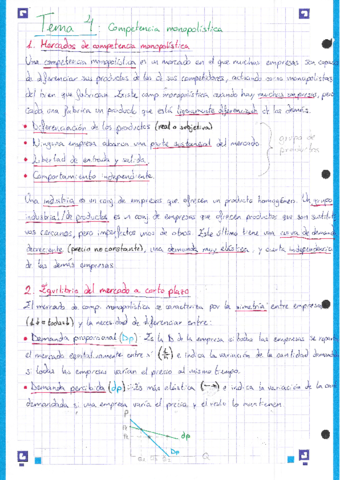 Tema 4: Competencia monopolística
1. Mercados de competencia monopolística
Una competencia monopolística es un mercado en el que muchas empresas son capaces
de diferenciar sus productos de los de sus competidores, actuando como monopolistas
del bien que fabrican. Existe camp monopolística cuando hay muchas empresas, pero
cada una fabrica un producto que está ligeramente diferenciado de las demás.
• Diferenciación de los productos (real o subjetiva)
• Ninguna empresa abarca una parte sustancial del mercado.
• Libertad de entrada y salida
• Comportamiento independiente
grupo de
productos
Una industria es un conj de empresas que ofrecen un producto homogéneo. Un grupo
industrial/de productos es un conj de empresas que ofrecen productos que son sustitut
vos cercanos, pero imperfectos unos de otros. Este último tiene una curva de demanda
decreciente (precio no constante), una demanda muy elástica, y cierta independencia
de las demás empresas.
2. Equilibrio del mercado a corto plazo
El mercado de comp. monopolística se caracteriza por la simetría entre empresas
y la necesidad de diferenciar entre:
• Demanda proporcional (Dp) Es la D de la empresa si todas las empresas se repar
el mercado equitativamente entre e indica la variación de la cantidad demanda
si todas las empresas varían el precio al mismo tiempo.
• Demanda percibida (dp): Es más elástica e indica la variación de la can
demandada si una empresa varía el precio y el resto lo mantienen.
P
dp
Dp
Q